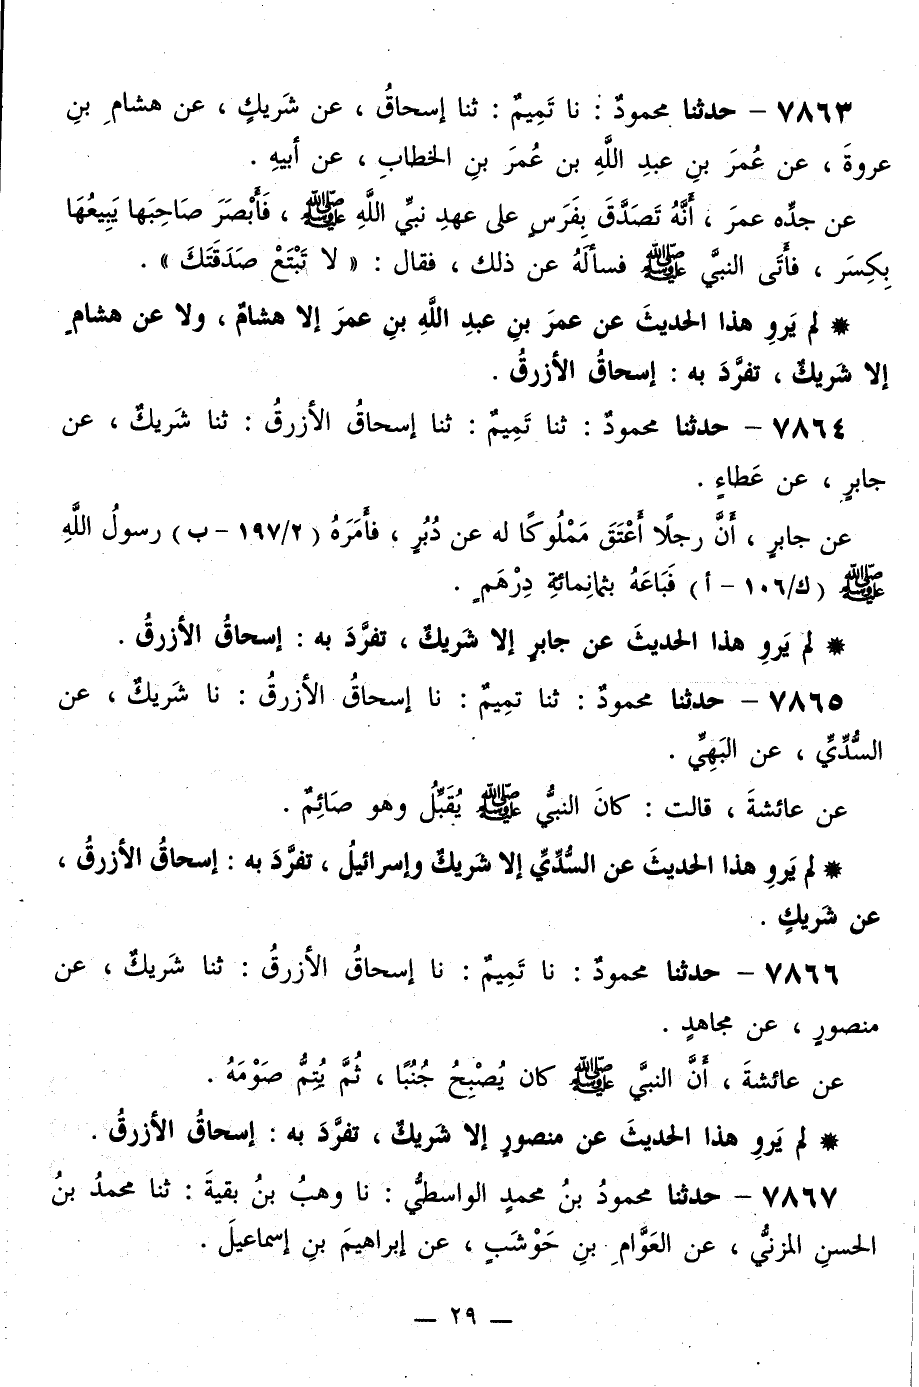 ٧٨٦٣ – حدثنا محمودٌ : نا تَمِيمٌ : ثنا إسحاقُ ، عن شَريكٍ ، عن هشامِ بنِ
عروةَ ، عن عُمرَ بنِ عبدِ اللَّهِ بن عُمرَ بنِ الخطابِ ، عن أبيهِ .
عن جدِّه عمرَ ، أَنَّهُ تَصَدَّقَ بِفَرَسٍ على عهدِ نبيِّ اللَّهِ ﷺ ، فَأَبْصَرَ صَاحِبَها يَبِيعُهَا
بِكِسَر ، فأَتَى النبيَّ ﷺ فسألَهُ عن ذلك ، فقال : « لا تَبْتَعْ صَدَقَتَكَ » .
* لم يَروِ هذا الحديثَ عن عمرَ بنِ عبدِ اللَّهِ بنِ عمرَ إلا هشامٌ ، ولا عن هشامٍ
إلا شَريكٌ ، تفرَّدَ به : إسحاقُ الأزرقُ .
٧٨٦٤ – حدثنا محمودٌ : ثنا تَمِيمٌ : ثنا إسحاقُ الأزرقُ : ثنا شَريكٌ ، عن
جابرٍ ، عن عَطاءٍ .
عن جابرٍ ، أَنَّ رجلًا أَعْتَقَ مَمْلُوكًا له عن دُبُرٍ ، فأَمَرَهُ ( ١٩٧/٢ – ب ) رسولُ اللَّهِ
ﷺ ( ك/١٠٦ – أ ) فَبَاعَهُ بثمانِمائةِ دِرْهَمٍ .
* لم يَروِ هذا الحديثَ عن جابرٍ إلا شَريكٌ ، تفرَّدَ به : إسحاقُ الأزرقُ .
٧٨٦٥ – حدثنا محمودٌ : ثنا تمِيمٌ : نا إسحاقُ الأزرقُ : نا شَريكٌ ، عن
السُّدِّيِّ ، عن البَهِيِّ .
عن عائشةَ ، قالت : كانَ النبيُّ ﷺ يُقَبِّلُ وهو صَائِمٌ .
* لم يَروِ هذا الحديثَ عن السُّدِّيِّ إلا شَريكٌ وإسرائيلُ ، تفرَّدَ به : إسحاقُ الأزرقُ ،
عن شَريكٍ .
٧٨٦٦ – حدثنا محمودٌ : نا تَمِيمٌ : نا إسحاقُ الأزرقُ : ثنا شَريكٌ ، عن
منصورٍ ، عن مجاهدٍ .
عن عائشةَ ، أَنَّ النبيَّ ﷺ كان يُصْبِحُ جُنُبًا ، ثُمَّ يُتِمُّ صَوْمَهُ .
* لم يَروِ هذا الحديثَ عن منصورٍ إلا شَريكٌ ، تفرَّدَ به : إسحاقُ الأزرقُ .
٧٨٦٧ – حدثنا محمودُ بنُ محمدٍ الواسطيُّ : نا وهبُ بنُ بقيةَ : ثنا محمدُ بنُ
الحسنِ المزنيُّ ، عن العَوَّامِ بنِ حَوْشَبٍ ، عن إبراهيمَ بنِ إسماعيلَ .
– ٢٩ –